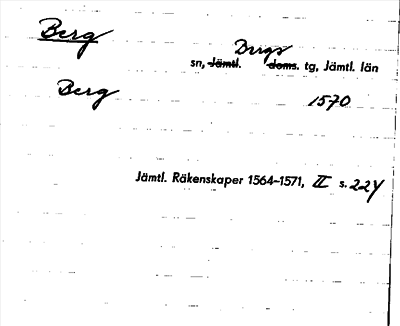 Berg
Bergs
sn, Jämtl. doms. tg, Jämtl. län
Berg 1570
Jämtl. Räkenskaper 1564-1571, II s. 224